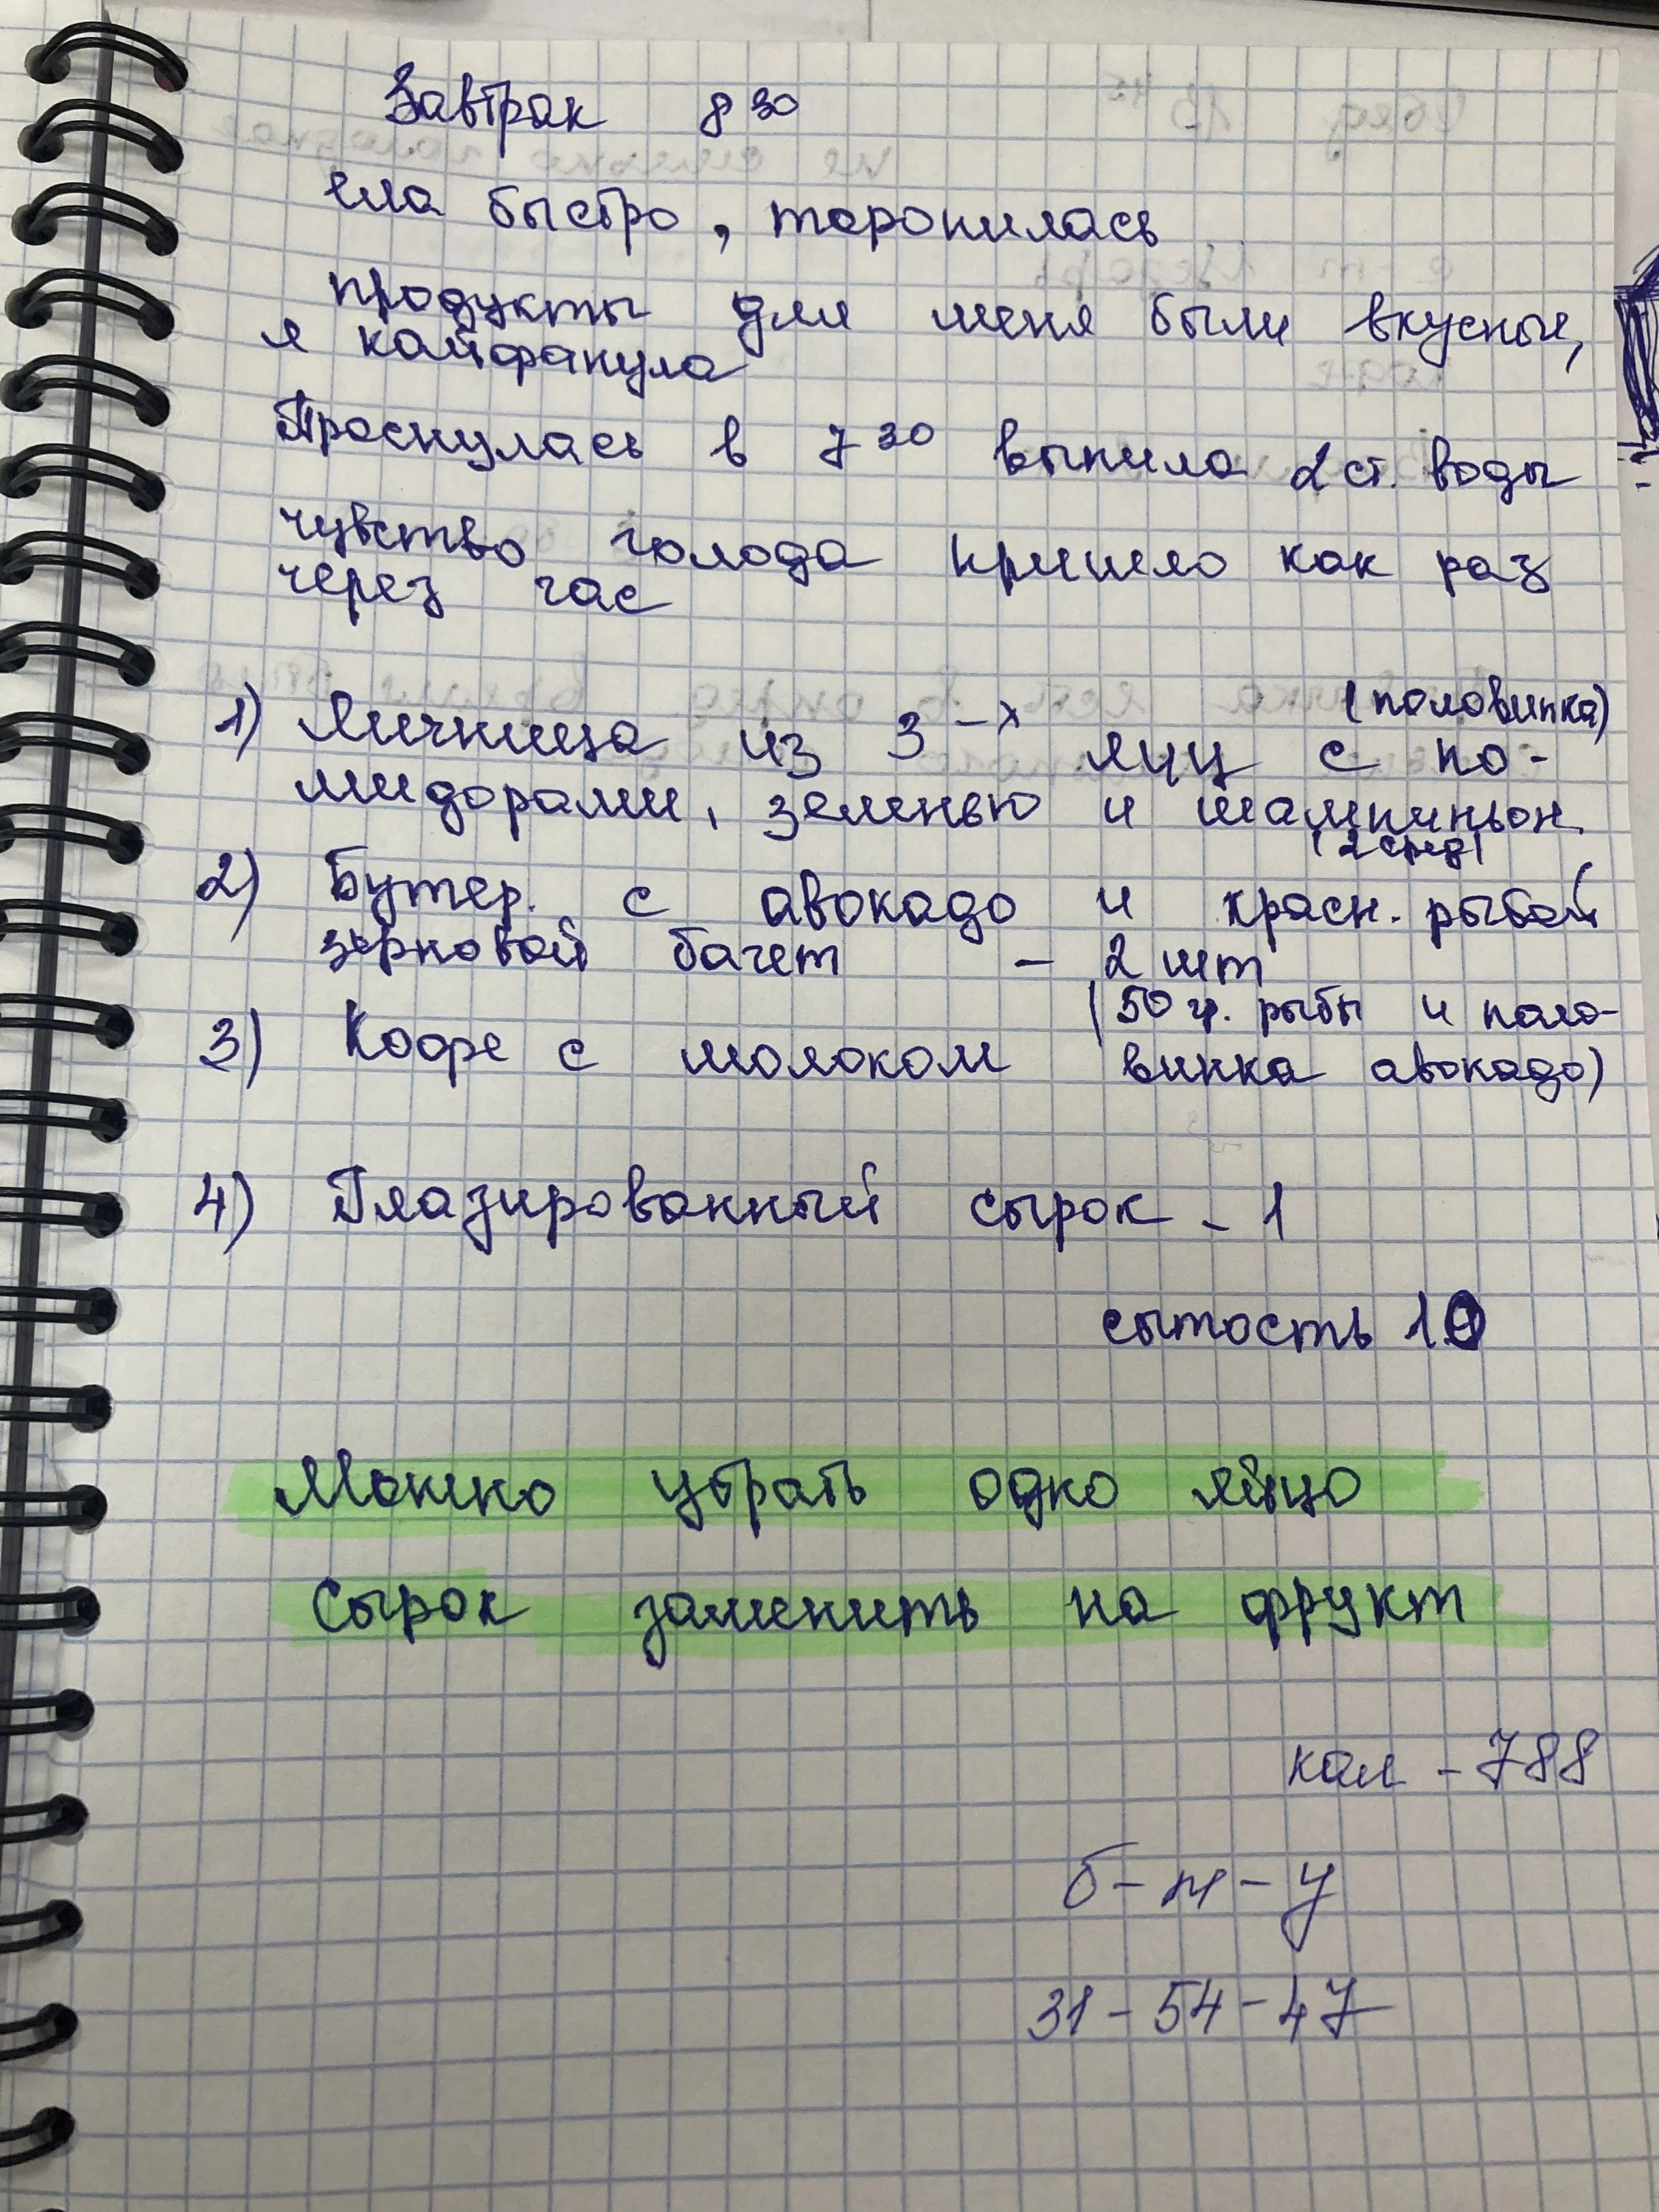 Завтрак 8 30
ела быстро, торопилась
продукты для меня были вкусные,
я кайфанула
Проснулась в 7 30 выпила 2 ст. воды
чувство голода пришло как раз
через час
(половинка)
1) Яичница из 3-х яиц с по-
мидорами, зеленью и шампиньон.
(2 сред)
2) Бутер. с авокадо и красн. рыбой
зерновой багет - 2 шт
(50 гр. рыбы и поло-
3) Кофе с молоком винка авокадо)
4) Глазированный сырок - 1
сытость 10
Можно убрать одно яйцо
Сырок заменить на фрукт
кал - 788
б - ж - у
31 - 54 - 47